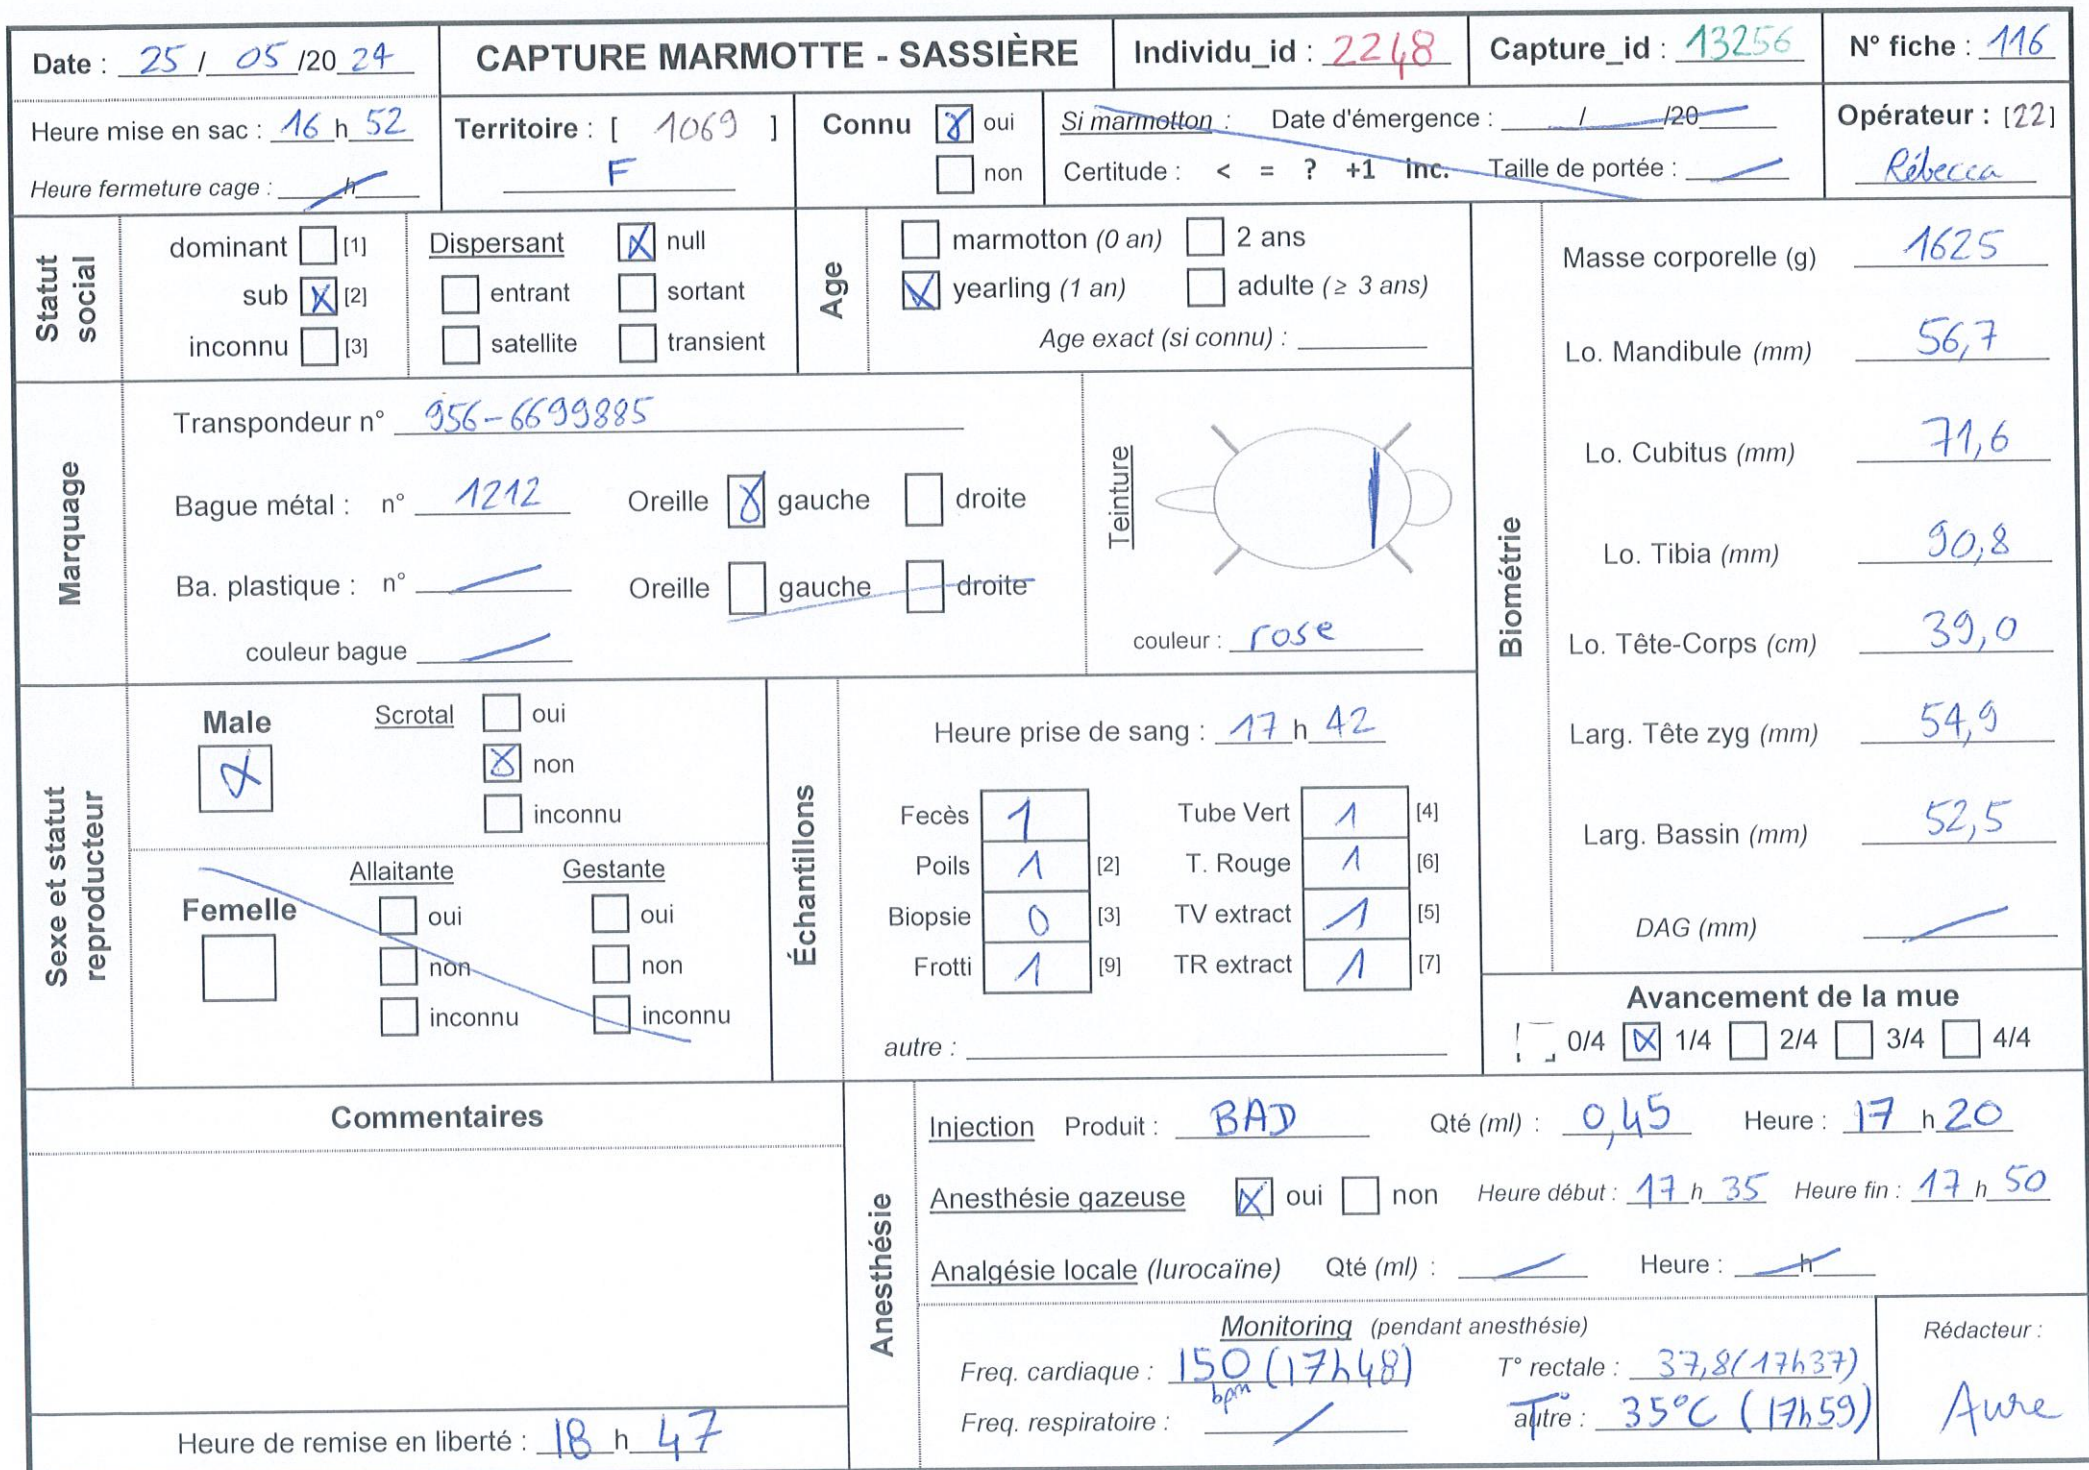 Date : 25 / 05 /20 24
CAPTURE MARMOTTE - SASSIÈRE
Individu_id : 2248
Capture_id : 13256
N° fiche : 116
Heure mise en sac : 16 h 52
Heure fermeture cage : h
Territoire : [ 1069 ]
F
Connu oui
non
Si marmotton : Date d'émergence : / /20
Certitude : < = ? +1 inc. Taille de portée :
Opérateur : [22]
Rébecca
Statut social
dominant [1]
sub [2]
inconnu [3]
Dispersant null
entrant sortant
satellite transient
Age
marmotton (0 an) 2 ans
yearling (1 an) adulte (≥ 3 ans)
Age exact (si connu) :
Marquage
Transpondeur n° 956-6699885
Bague métal : n° 1212 Oreille gauche droite
Ba. plastique : n° Oreille gauche droite
couleur bague
Teinture
couleur : rose
Biométrie
Masse corporelle (g) 1625
Lo. Mandibule (mm) 56,7
Lo. Cubitus (mm) 71,6
Lo. Tibia (mm) 90,8
Lo. Tête-Corps (cm) 39,0
Larg. Tête zyg (mm) 54,9
Larg. Bassin (mm) 52,5
DAG (mm)
Sexe et statut reproducteur
Male
Scrotal oui
non
inconnu
Femelle
Allaitante Gestante
oui oui
non non
inconnu inconnu
Échantillons
Heure prise de sang : 17 h 42
Fecès 1 Tube Vert 1 [4]
Poils 1 [2] T. Rouge 1 [6]
Biopsie 0 [3] TV extract 1 [5]
Frotti 1 [9] TR extract 1 [7]
autre :
Avancement de la mue
0/4 1/4 2/4 3/4 4/4
Commentaires
Heure de remise en liberté : 18 h 47
Anesthésie
Injection Produit : BAD Qté (ml) : 0,45 Heure : 17 h 20
Anesthésie gazeuse oui non Heure début : 17 h 35 Heure fin : 17 h 50
Analgésie locale (lurocaïne) Qté (ml) : Heure : h
Monitoring (pendant anesthésie)
Freq. cardiaque : 150 (17h48) T° rectale : 37,8(17h37)
bpm
Freq. respiratoire : autre : T° 35°C (17h59)
Rédacteur :
Aure